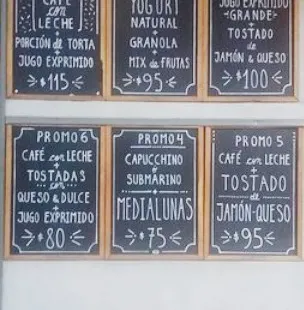 CAFÉ
con
LECHE
+
PORCIÓN de TORTA
+
JUGO EXPRIMIDO
$115
YOGURT
NATURAL
+
GRANOLA
+
MIX de FRUTAS
$95
JUGO EXPRIMIDO
-GRANDE-
+
TOSTADO
de
JAMÓN & QUESO
$100
PROMO 6
CAFÉ con LECHE
+
TOSTADAS
con
QUESO & DULCE
+
JUGO EXPRIMIDO
$80
PROMO 4
CAPUCCHINO
o
SUBMARINO
+
MEDIALUNAS
$75
PROMO 5
CAFÉ con LECHE
+
TOSTADO
de
JAMÓN-QUESO
$95